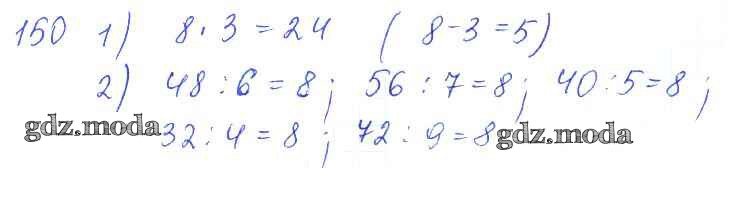 150 1) 8 · 3 = 24 ( 8 - 3 = 5)
2) 48 : 6 = 8 ; 56 : 7 = 8 ; 40 : 5 = 8 ;
gdz.moda 32 : 4 = 8 ; 72 : 9 = 8 gdz.moda